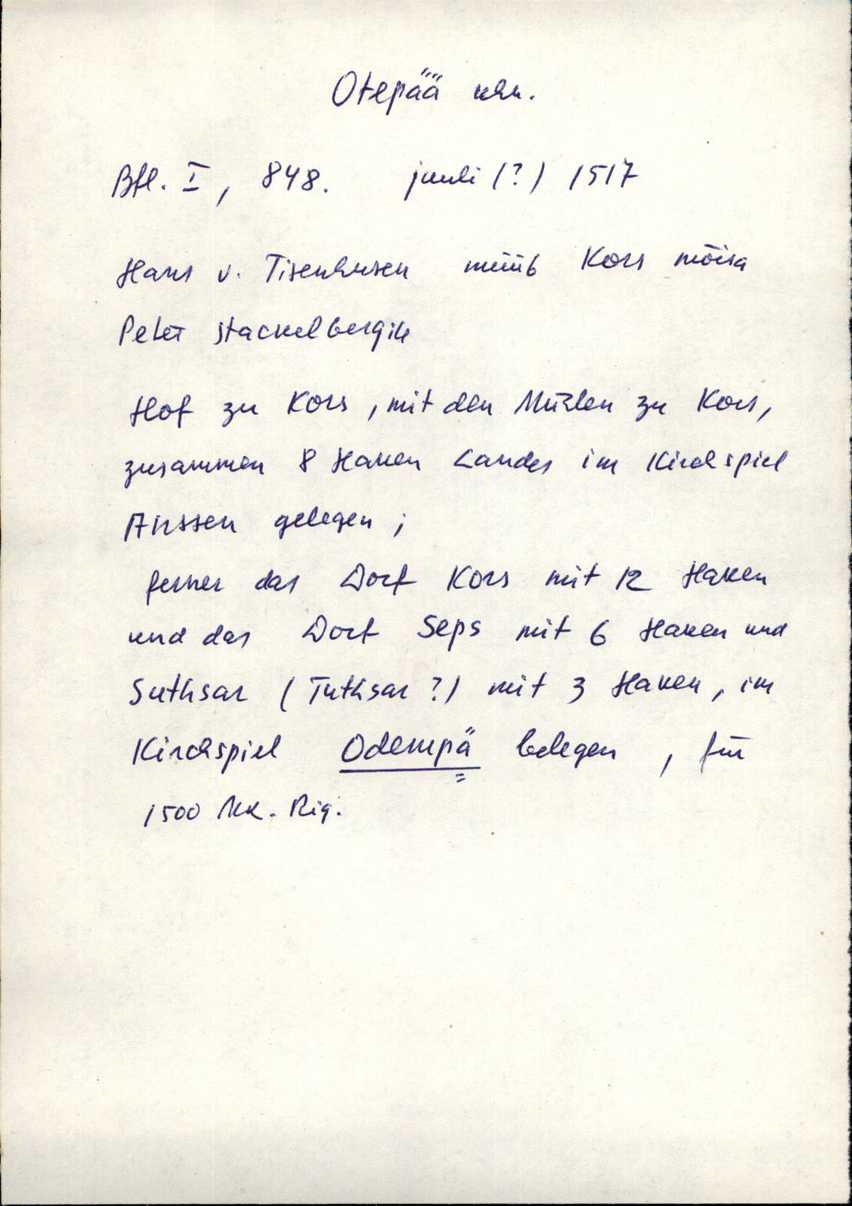 Otepää khk.
Bfl. I, 848. juuli (?) 1517
Hans v. Tisenhusen müüb Kors mõisa
Peter Stackelbergile
Hof zu Kors, mit den Mühlen zu Kors,
zusammen 8 Haken Landes im Kirchspiel
Anssen gelegen;
ferner das Dorf Kors mit 12 Haken
und das Dorf Seps mit 6 Haken und
Suthsar (Tuthsar?) mit 3 Haken, im
Kirchspiel Odempä belegen, für
1500 Mk. Rig.